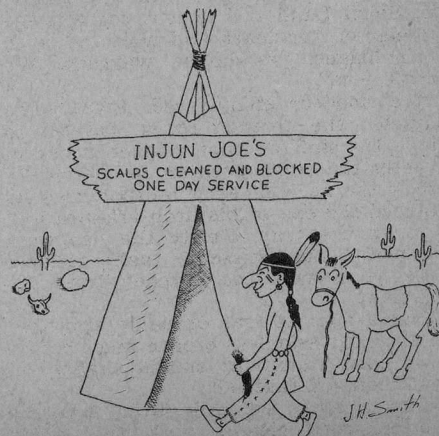 INJUN JOE'S
SCALPS CLEANED AND BLOCKED
ONE DAY SERVICE
J.H. Smith